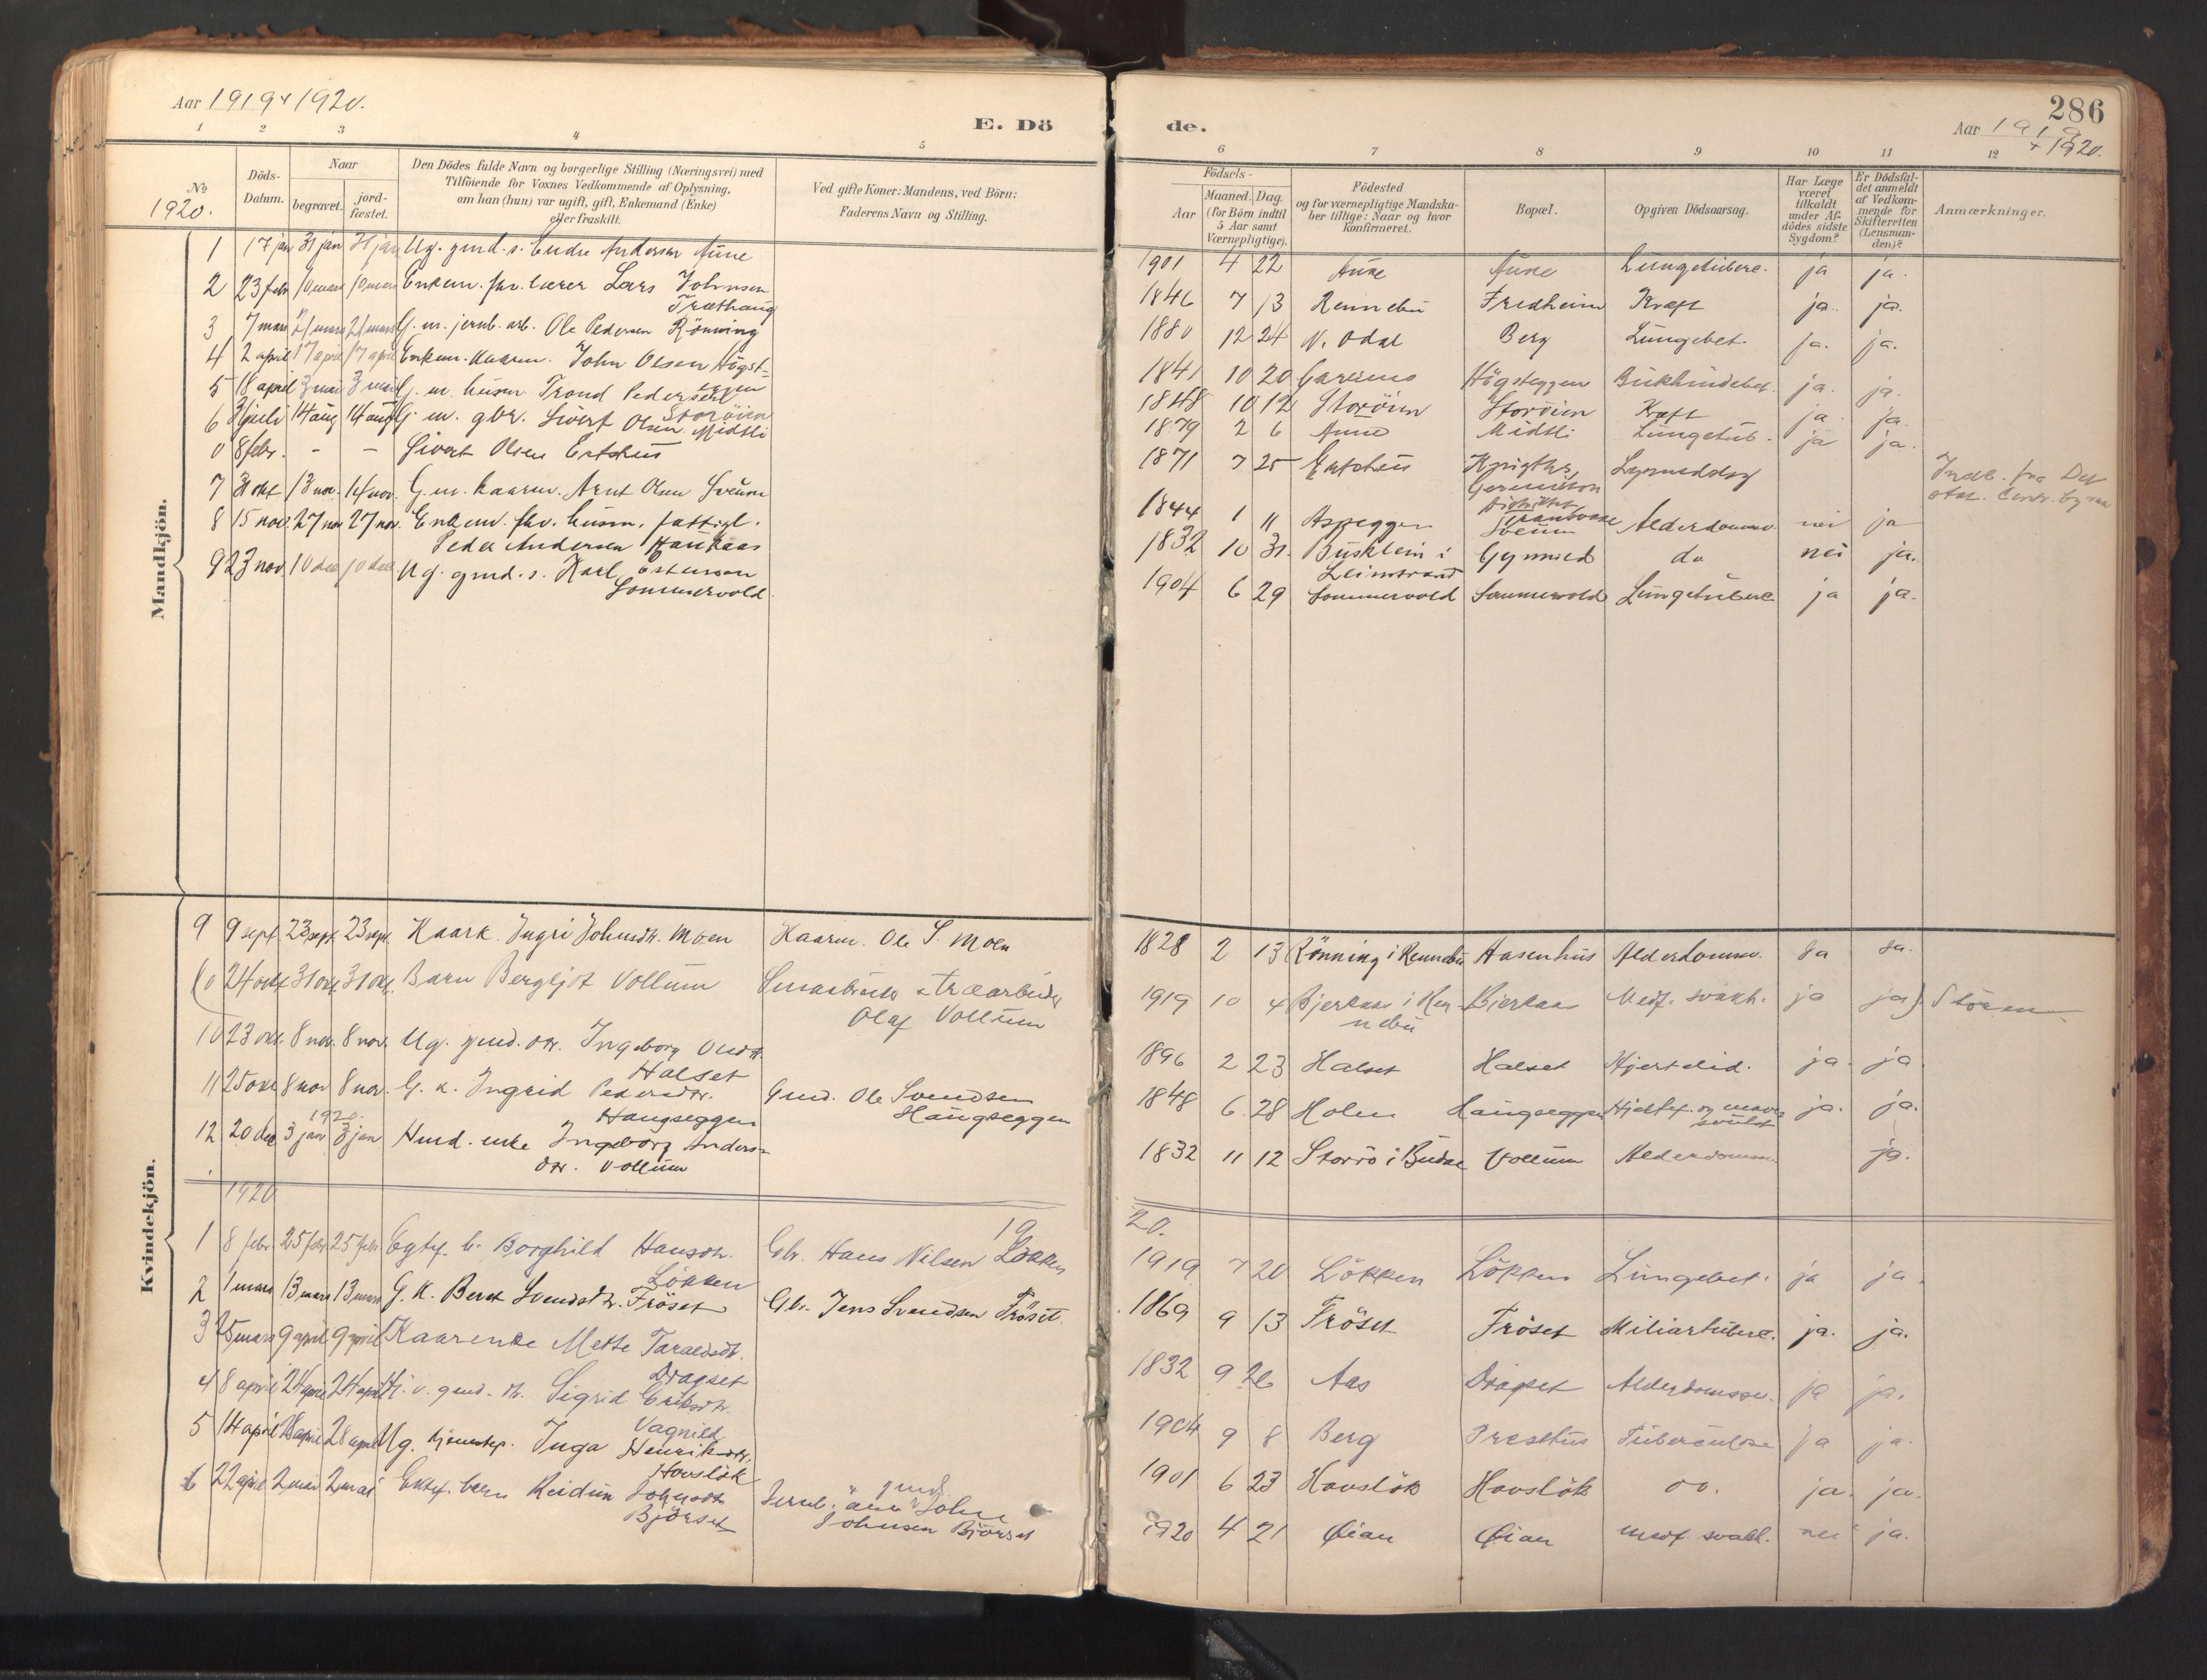 Aar 1919 + 1920.
E. Dö
1 2 3 4 5
No
1920.
Döds-
Datum.
Naar
begravet.
jord-
fæstet.
Den Dödes fulde Navn og borgerlige Stilling (Næringsvei) med
Tilföiende for Voxnes Vedkommende af Oplysning,
om han (hun) var ugift, gift, Enkemand (Enke)
eller fraskilt.
Ved gifte Koner: Mandens, ved Börn:
Faderens Navn og Stilling.
Mandkjön.
1 17 jan 31 jan 31 jan Ug. gmd. s. Endre Andersen Aune
2 23 febr 10 mars 10 mars Enkem. fhv. lærer Lars Johnsen
Træthaug
3 7 mars 21 mars 21 mars G. m. jernb. arb. Ole Pedersen Rönning
4 2 april 17 april 17 april Enkem. kaarm. John Olsen Högst-
eggen
5 18 april 3 mai 3 mai G. m. husm. Trond Pedersen
Storöien
6 31 juli 14 aug 14 aug G. m. gbr. Sivert Olsen Midtli
0 8 febr. - - Sivert Olsen
7 31 okt 13 nov. 14 nov. G. m. kaarm. Arnt Olsen Sveum
8 15 nov. 27 nov 27 nov. Enkem. fhv. husm. fattigl.
Peder Andersen Kaukaas
9 23 nov 10 dec 10 dec Ug. gmd. s. Karl Estensen
Sommervold
Kvindekjön.
9 9 sept 23 sept. 23 sept. Kaark. Ingri Johnsdtr. Moen Kaarm. Ole S. Moen
(0 24 okt 31 okt. 31 okt. Barn Bergljot Vollum Smaabruker & træarbeider
Olaf Vollum
10 23 okt. 8 nov. 8 nov. Ug. gmd. dtr. Ingeborg
Halset
11 25 okt 8 nov 8 nov. G. k. Ingrid Pedersdtr. Gmd. Ole Svendsen
Haugseggen Haugseggen
1920
12 20 dec 3 jan 3 jan Husmd. enke Ingeborg Anders-
dtr. Vollum
1920 19
1 8 febr. 25 febr 25 febr Egtef. b. Borghild Hansdtr. Gbr. Hans Nilsen Lökken
Lökken
2 1 mars 13 mars 13 mars G. K. Beret Svendsdtr. Fröset Gbr. Jens Svendsen Fröset.
3 25 mars 9 april 9 april Kaarenke Mette Taraldsdtr.
Dragset
4 8 april 24 april 24 april gmd. dtr. Sigrid Eriksdtr.
Vagnild
5 14 april 28 april 28 april Ug. hjemstep. Inga Henriksdtr.
Havslök
6 22 april 2 mai 2 mai Ektef. barn Reidun Johnsdtr. Jernb. John
Björset Johnsen Björset
286
de.
Aar 1919
+ 1920.
6 7 8 9 10 11 12
Födsels-
Aar
Maaned. Dag.
(for Börn indtil
5 Aar samt
Værnepligtige).
Födested
og for værnepligtige Mandska-
ber tillige: Naar og hvor
konfirmeret.
Bopæl.
Opgiven Dödsaarsag.
Har Læge
været
tilkaldt
under Af-
dödes sidste
Sygdom?
Er Dödsfal-
det anmeldt
af Vedkom-
mende for
Skifteretten
(Lensman-
den)?
Anmærkninger.
1901 4 22 Aune Aune Lungetuberc. ja ja.
1846 7 13 Rennebu Fredheim Kræft ja. ja.
1880 12 24 N. Odal Berg Lungebet. ja. ja.
1841 10 20 Högseggen Bukhindebet. ja. ja.
1848 10 12 Storöien Storöien Kræft ja. ja.
1879 2 6 Aune Midtli Lungetub. ja ja.
1871 7 25
Germiston
distriktet
Transvaal
Indb. fra Det
stat. Centr. byraa
1844 1 11 Aspeggen Sveum Alderdomssv. nei ja
1832 10 31. Busklein i Gynnild do nei ja.
Leinstrand
1904 6 29 Sommervold Sommervold Lungetuberc. ja ja.
1828 2 13 Rönning i Rennebu Aasenhus Alderdomssv. ja ja.
1919 10 4 Bjerkaas i Ren- Bjerkaas Medf. svakh. ja ja) Stören
nebu
1896 2 23 Halset Halset Hjertelid. ja. ja
1848 6 28 Holm Haugseggen Hjertef. og mave- ja. ja.
svulst
1832 11 12 Storrö i Budal Vollum Alderdomssv. ja.
20.
1919 7 20 Lökken Lökken Lungebet. ja ja.
1869 9 13 Fröset Fröset Miliartuberc. ja. ja.
1832 9 26 Aas Dragset Alderdomssv. ja ja.
1904 9 8 Berg Presthus Tuberculose ja ja.
1901 6 23 Havslök Havslök do. ja. ja.
1920 4 21 Öian Öian medf. svakh. nei ja.